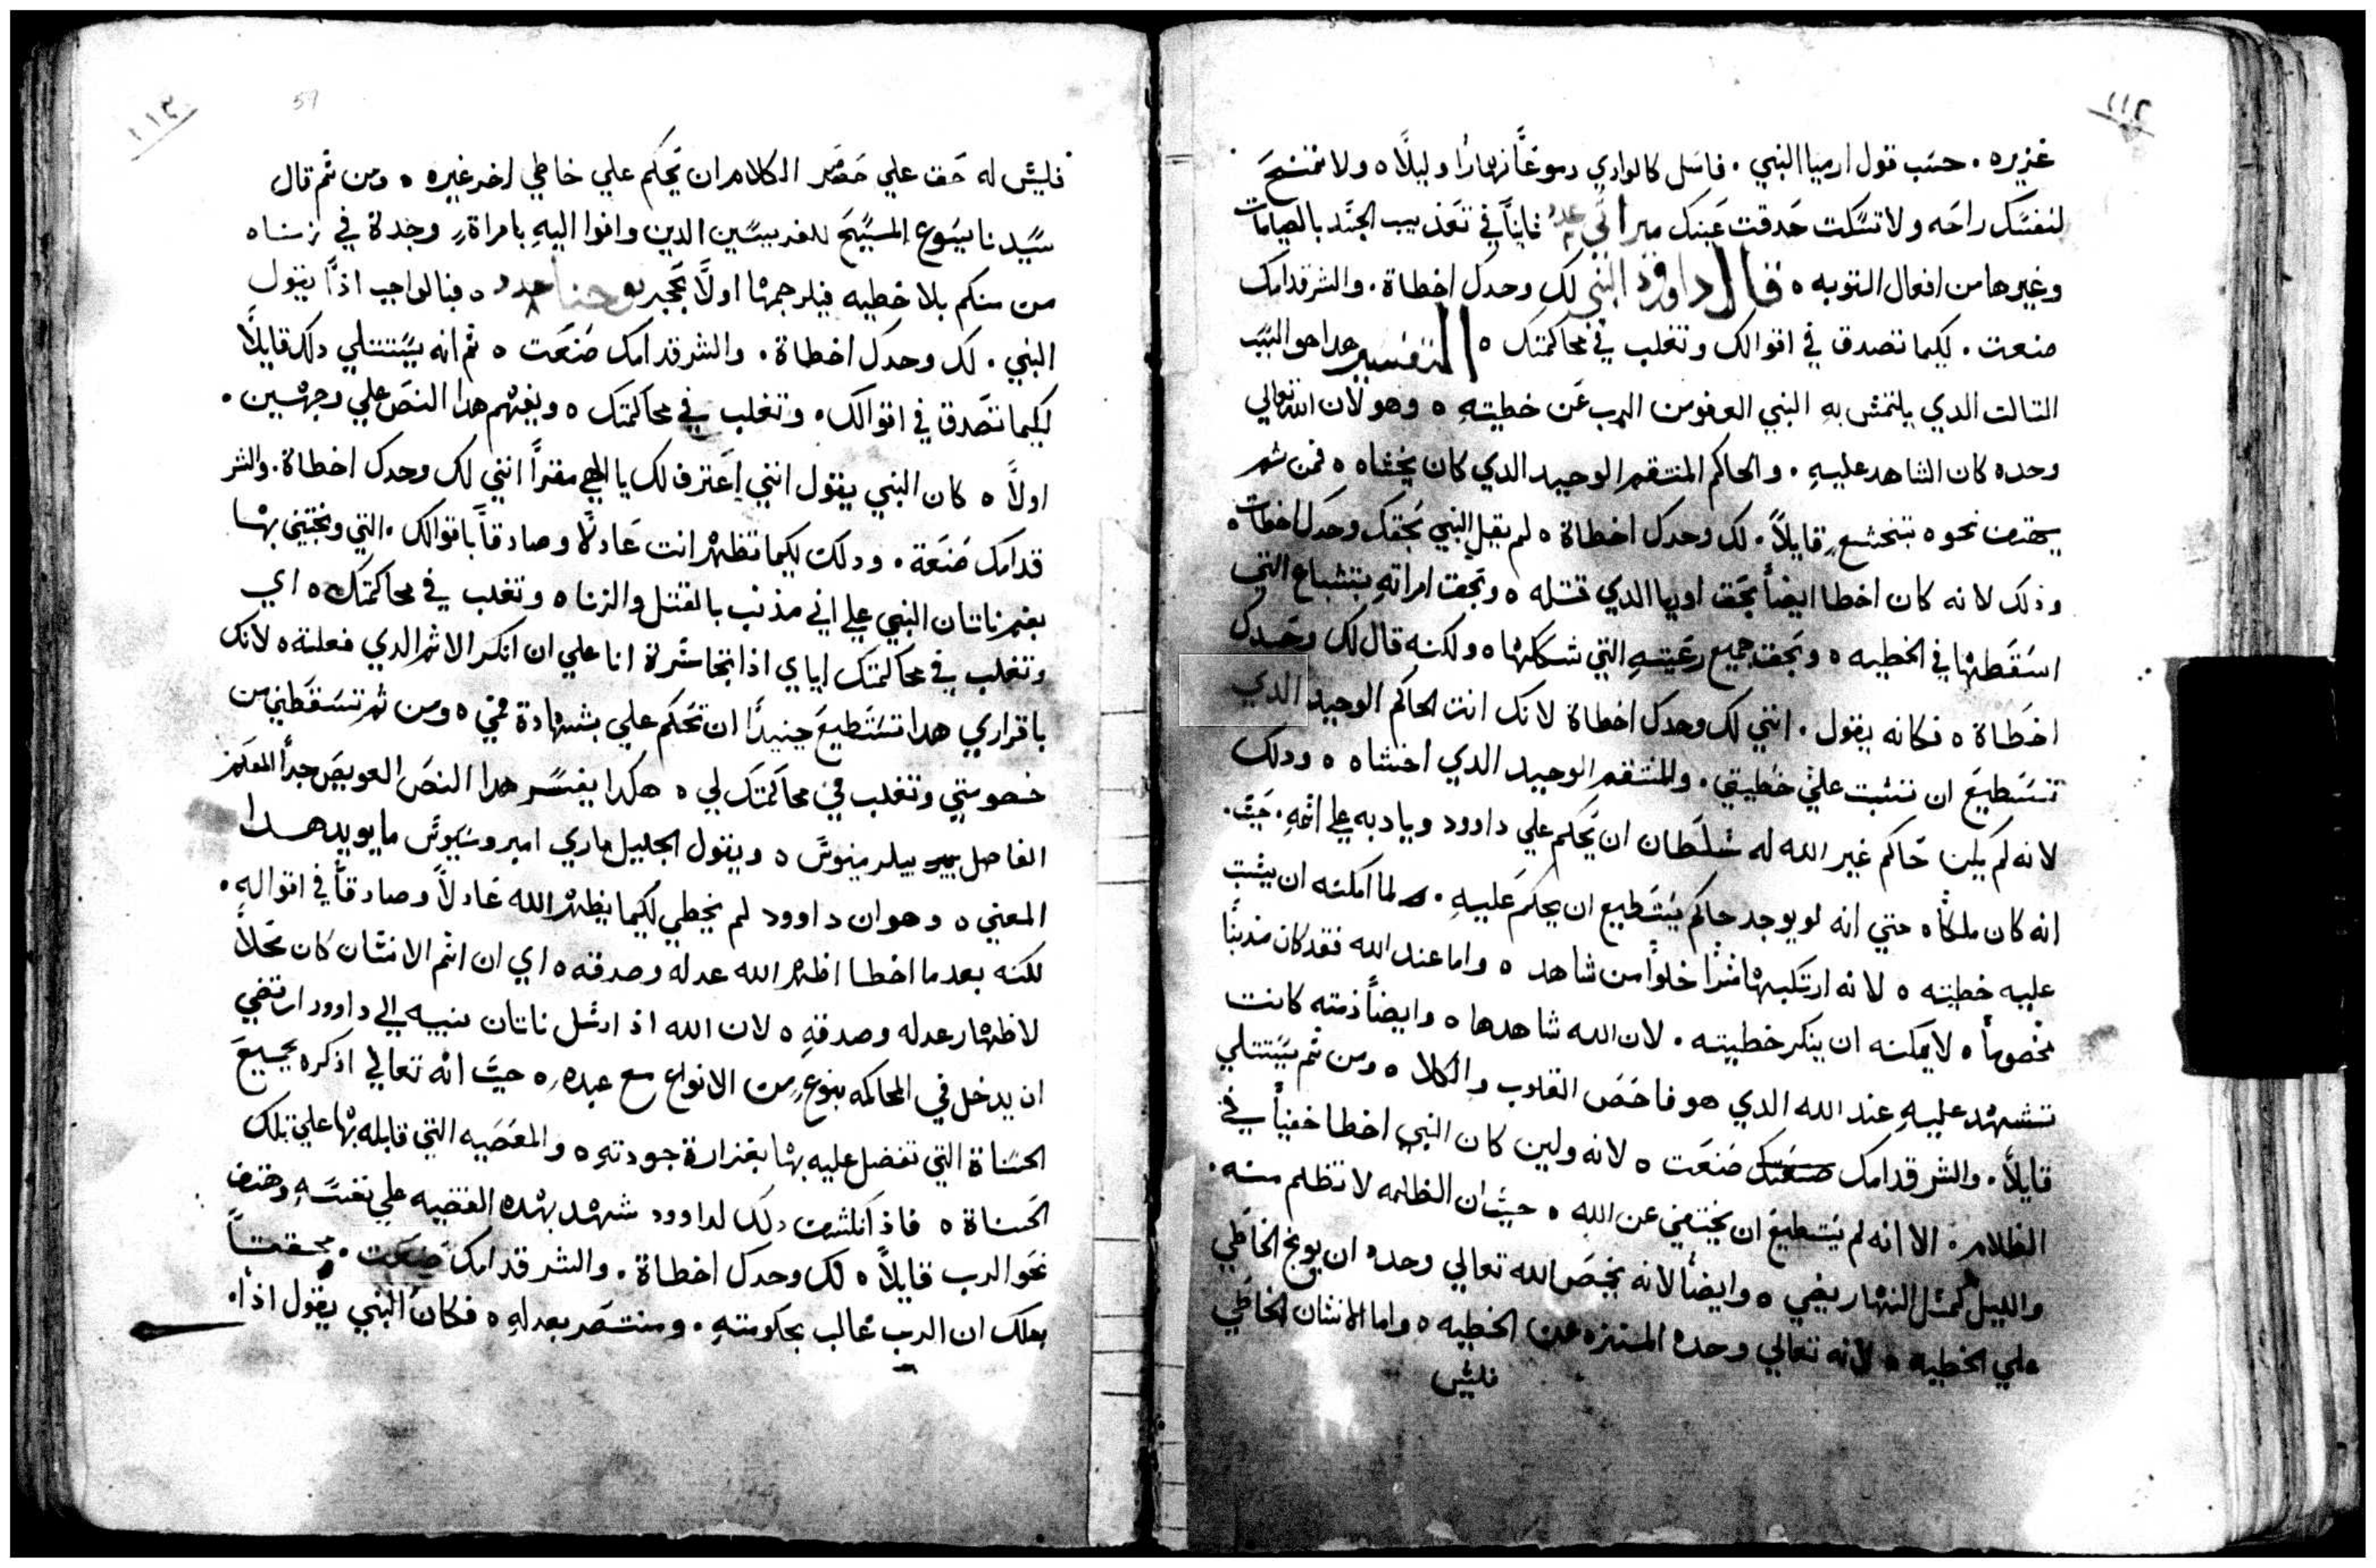 ١١٢
غزيره . حسب قول ارميا النبي . فاسل كالوادي دموعاً نهارًا وليلًا ه ولا تمنح
لنفسك راحه ولا تسكت حدقت عينك مراثي عدد ثانيًا في تعذيب الجسد بالصيامات
وغيرها من افعال التوبه ه قال داوود النبي لك وحدك اخطاة . والشر قدامك
صنعت . لكيما تصدق في اقوالك وتغلب في محاكمتك ه التفسير هدا هو السبب
التالت الدي يلتمس بهِ النبي العفو من الرب عن خطيتهِ ه وهو لان الله تعالي
وحده كان الشاهد عليهِ . والحاكم المنتقم الوحيد الدي كان يخشاه ه فمن ثم
يهتف نحوه بتخشعٍ قايلاً . لك وحدك اخطاة ه لم يقل النبي بحقك وحدك اخطات ه
وذلك لانه كان اخطا ايضاً بحق اوريا الدي قتله ه وبحق امراتهِ بتشباع التي
اسقطها في الخطيه ه وبحق جميع رعيتهِ التي شككها ه ولكنه قال لك وحدك
اخطاة ه فكانه يقول . انني لك وحدك اخطاة لانك انت الحاكم الوحيد الدي
تستطيع ان تثبت علي خطيتي . والمنتقم الوحيد الدي اخشاه ه ودلك
لانه لم يكن حاكم غير الله له سلطان ان يحكم علي داوود ويادبه علي اثمهِ . حيث .
انه كان ملكاً ه حتي انه لو يوجد حاكم يستطيع ان يحكم عليهِ . لما امكنه ان يثبت
عليه خطيته ه لانه ارتكبها سرًا خلواً من شاهد ه واما عند الله فقد كان مذنبًا
مخصوماً ه لا يمكنه ان ينكر خطيته . لان الله شاهدها ه وايضاً ذمته كانت
تشهد عليهِ عند الله الدي هو فاحص القلوب والكلا ه ومن ثم يستتلي
قايلاً . والشر قدامك صنعت ه لانه ولين كان النبي اخطا خفياً في
الظلام . الا انه لم يستطيع ان يختفي عن الله ه حيث ان الظلمه لا تظلم منه .
والليل كمثل النهار يضي ه وايضاً لانه يخص الله تعالي وحده ان يوبخ الخاطي
علي الخطيه ه لانه تعالي وحده المنزه عن الخطيه ه واما الانسان الخاطي
فليس
١١٣
57
فليس له حق علي حصر الكلام ان يحكم علي خاطي اخر غيره ه ومن ثم قال
سيدنا يسوع المسيح للفريسين الدين وافوا اليهِ بامراةٍ وجدة في زناه
من منكم بلا خطيه فليرجمها اولاً بحجر يوحنا عدد ٨ ه فبالواجب اذاً يقول
النبي . لك وحدك اخطاة . والشر قدامك صنعت ه ثم انه يستتلي دلك قايلاً
لكيما تصدق في اقوالك . وتغلب في محاكمتك ه ويفهم هدا النص علي وجهين .
اولاً ه كان النبي يقول انني اعترف لك يا الهي مقراً انني لك وحدك اخطاة . والشر
قدامك صنعة . ودلك لكيما تظهر انت عادلًا وصادقاً باقوالك . التي وبختني بها
بفم ناتان النبي علي اني مذنب بالقتل والزنا ه وتغلب في محاكمتك ه اي
وتغلب في محاكمتك اياي اذا تجاسرة انا علي ان انكر الاثم الدي فعلته ه لانك
باقراري هدا تستطيع حينيدًا ان تحكم علي بشهادة فمي ه ومن ثم تسقطني من
خصومتي وتغلب في محاكمتك لي ه هكدا يفسر هدا النص العويص جداً المعلم
الفاضل بيلرمينوس ه ويقول الجليل ماري امبروسيوس ما يويد هدا
المعني ه وهو ان داوود لم يخطي لكيما يظهر الله عادلاً وصادقاً في اقوالهِ .
لكنه بعد ما اخطا اظهر الله عدله وصدقه ه اي ان اثم الانسان كان محلاً
لاظهار عدله وصدقهِ ه لان الله اذ ارسل ناتان نبيه الي داوود ارتضي
ان يدخل في المحاكمه بنوعٍ من الانواع مع عبدهِ ه حيث انه تعالي اذكره بجميع
الحسناة التي تفضل عليه بها بغزارة جودتهِ ه والمعصيه التي قابله بها علي تلك
الحسناة ه فاذ انكشف دلك لداوود شهد بهده القضيه علي نفسهِ وهتف
نحو الرب قايلاً ه لك وحدك اخطاة . والشر قدامك صنعت . محققاً
بدلك ان الرب غالب بحكومتهِ . ومنتصر بعدلهِ ه فكان النبي يقول اذاً .